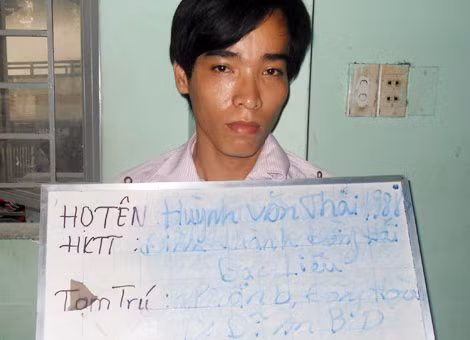 HỌ TÊN Huỳnh Văn Thái 198
HKTT : Thành Đông Hải
Bạc Liêu
Tạm Trú : D, Đông Hòa
Dĩ An B.D